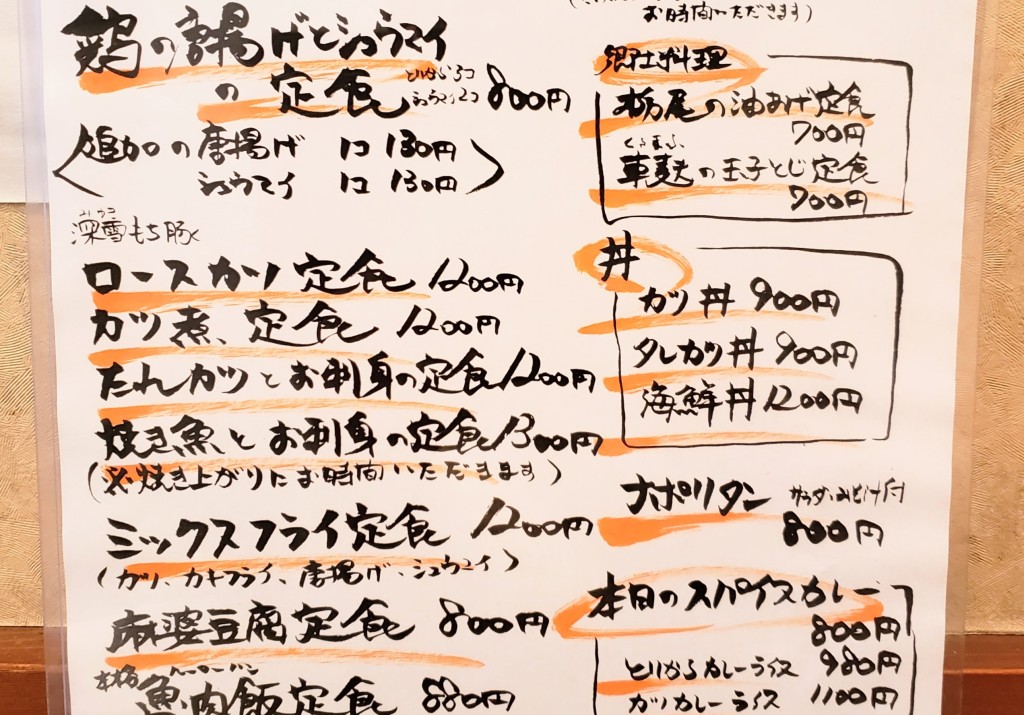 鶏の唐揚げとシュウマイ
の定食 とりから3コ シュウマイ2コ 800円
〈追加の唐揚げ 1コ 130円〉
シュウマイ 1コ 130円
深雪もち豚
ロースカツ定食 1200円
カツ煮、定食 1200円
たれカツとお刺身の定食 1200円
焼き魚とお刺身の定食 1300円
(※焼き上がりにお時間いただきます)
ミックスフライ定食 1200円
(カツ、カキフライ、唐揚げ、シュウマイ)
麻婆豆腐定食 800円
本格 魯肉飯定食 880円
お時間いただきます)
郷土料理
栃尾の油あげ定食
700円
くるまふ
車麩の玉子とじ定食
700円
丼
カツ丼 900円
タレカツ丼 900円
海鮮丼 1200円
ナポリタン サラダ、みそ汁付
800円
本日のスパイスカレー
800円
とりからカレーライス 980円
カツカレーライス 1100円